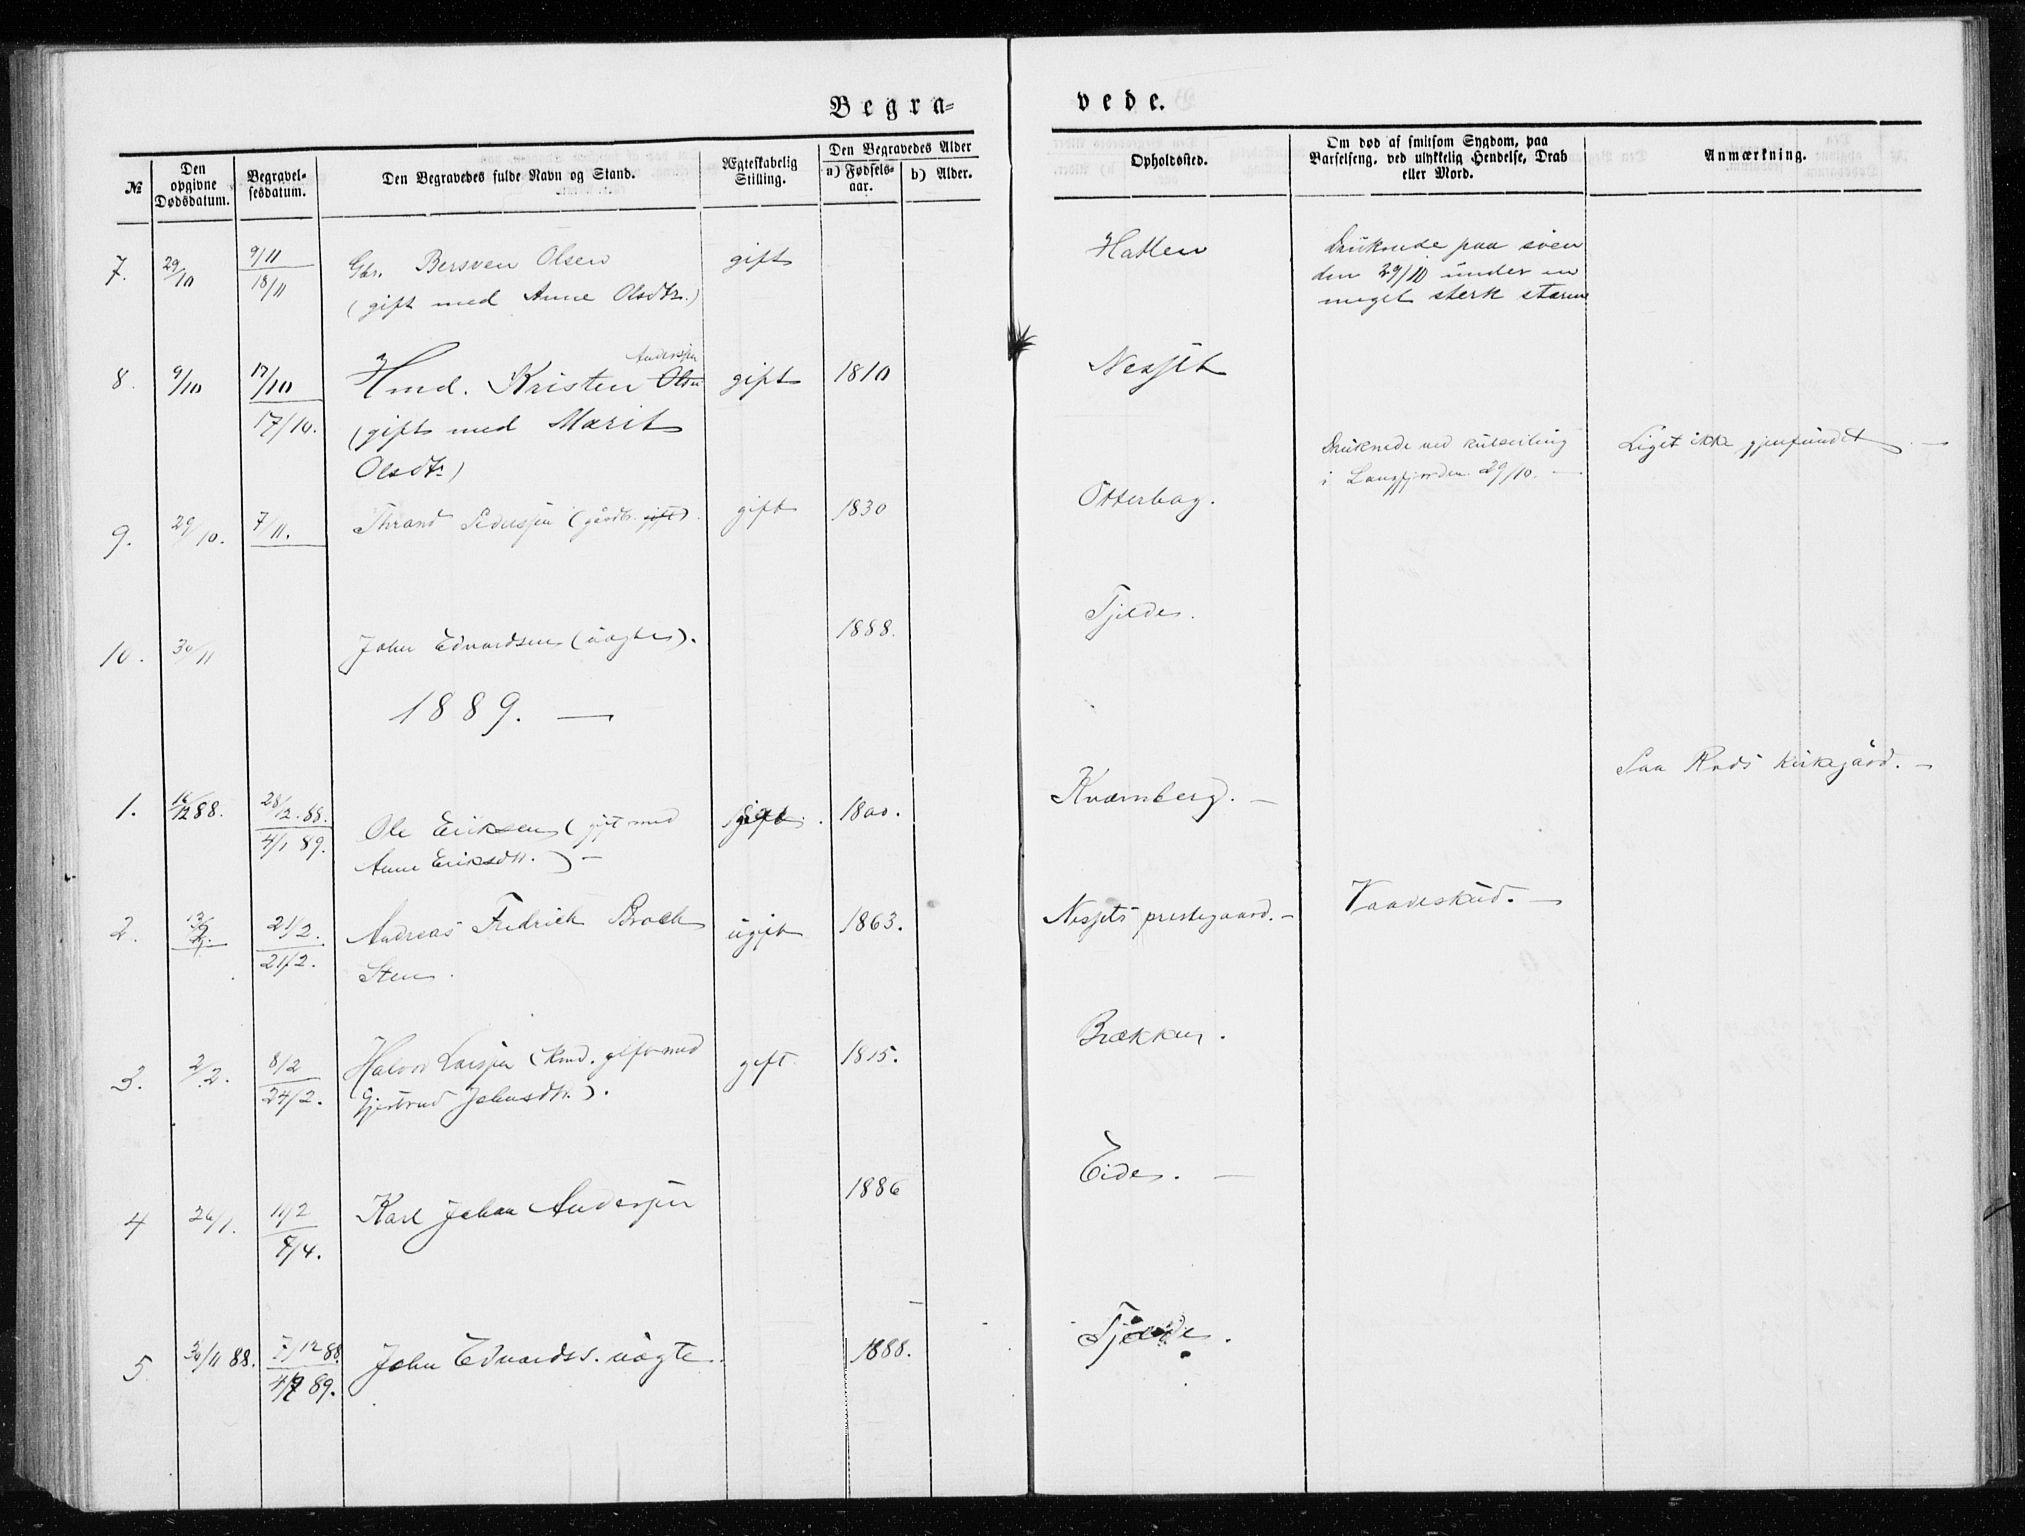 Begra=
vede.
№
Den opgivne Dødsdatum.
Begravelsesdatum.
Den Begravedes fulde Navn og Stand.
Ægteskabelig Stilling.
Den Begravedes Alder
a) Fødselsaar.
b) Alder.
Opholdssted.
Om død af smitsom Sygdom, paa Barselseng, ved ulykkelig Hendelse, Drab eller Mord.
Anmærkning.
7. 29/10 9/11 Gbr. Bersven Olsen gift Hatlen Druknede paa søen
18/11 (gift med Anne Olsdtr.) den 29/10 under en
meget sterk storm
Anderssen
8. 9/10 17/10 Hmd. Kristen Olsen gift 1810 Nesset
17/10. (gift med Marit
Olsdtr)
Druknede ved kulseiling Liget ikke gjenfundet. —
i Langfjorden 29/10. —
9. 29/10. 7/11. Thrand Pederssen (gårdbr. gift). gift 1830 Otterbog.
10. 30/11 John Edvardsen (uægte). 1888. Tjelde.
1889. —
Paa Røds kirkegård. —
1. 16/12 88. 28/12. 88. Ole Eriksen (gift med gift. 1800. Kvernberg. —
4/1 89. Anne Eriksdtr.) —
2. 13/2. 21/2. Andreas Fredrich Brock ugift 1863. Nessets prestegaard. — Vaadeskud. —
21/2. Sten.
3. 2/2. 8/2 Halvor Larssen (kmd. gift med gift. 1815. Brækken.
24/2. Gjertrud Johnsdtr.).
4 26/1. 10/2 Karl Johan Anderssen 1886 Eide. —
7/4.
5 30/11 88. 7/12 88. John Edvardss. uægte. 1888. Tjelde.
4/7 89.